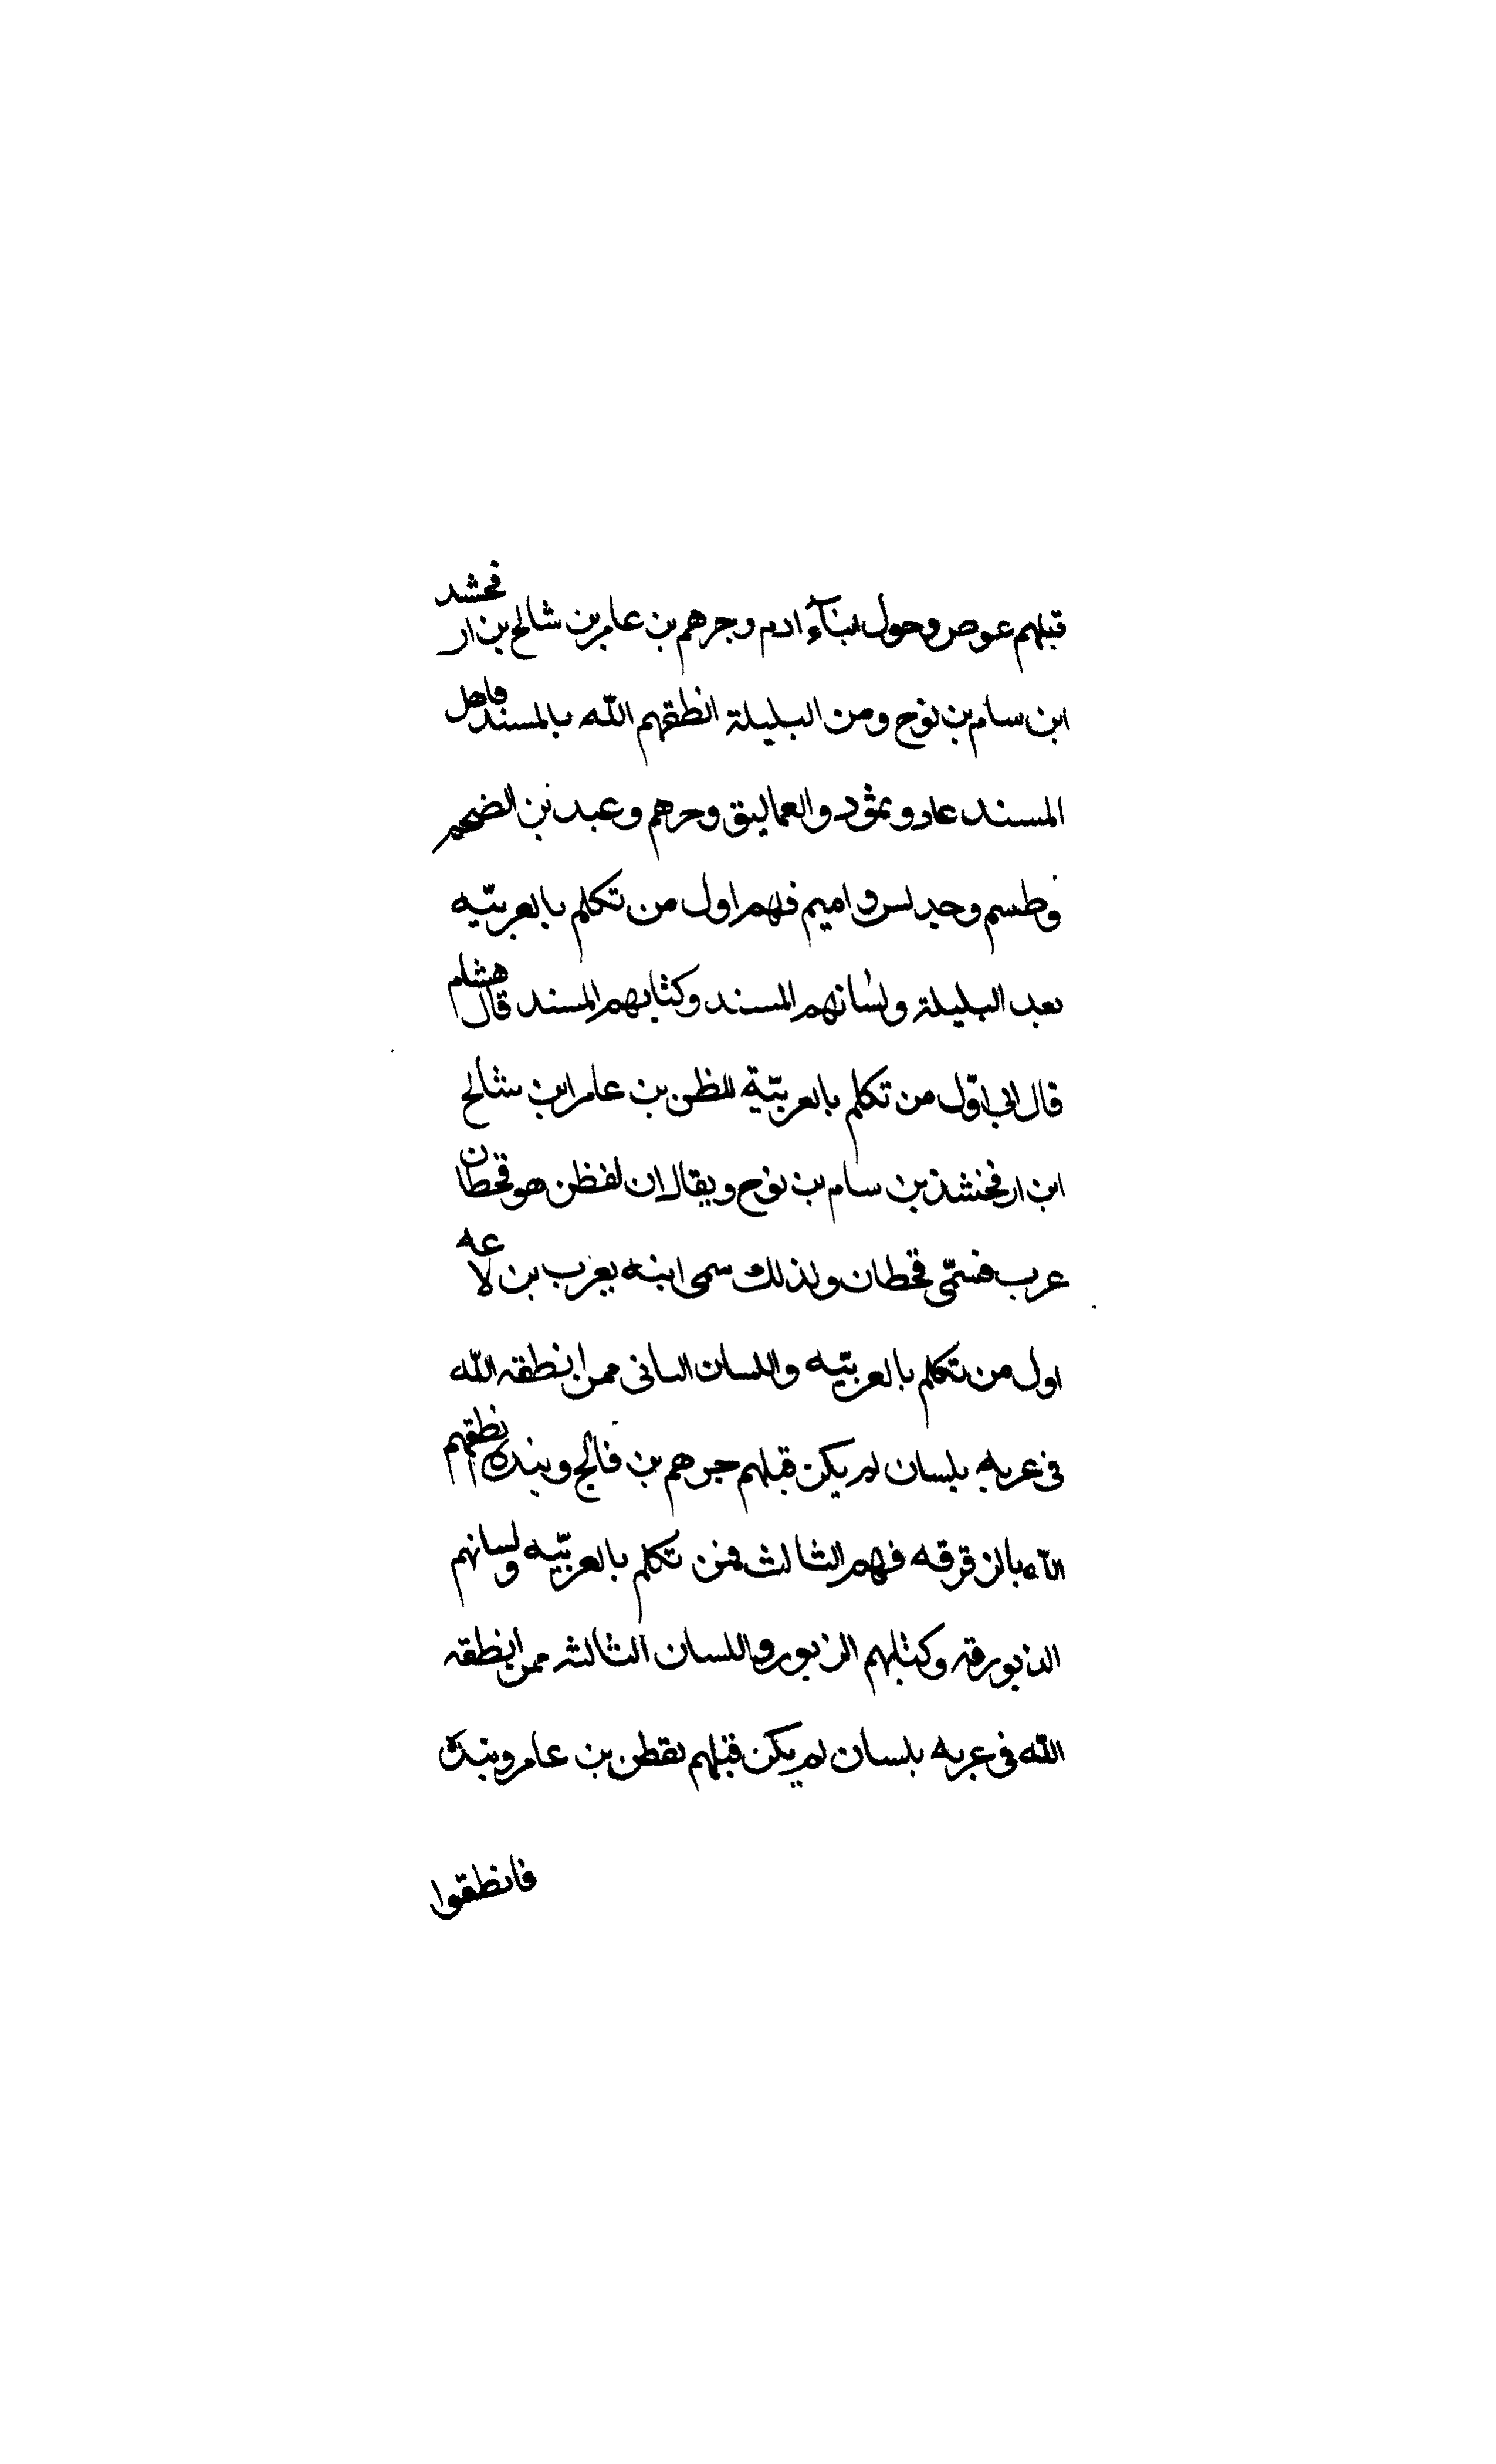 قبلهم عوص وحول ابناء ادم وجرهم بن عامر بن شالح بن ارفحشد
ابن سام بن نوح ومن البليلة انطقهم الله بالمسند فاهل
المسند عاد وثمود والعماليق وجرهم وعبد بن الضخم
وطسم وجديس واميم فهم اول من تكلم بالعربيّه
بعد البليلة ولسانهم المسند وكتابهم المسند قال هشام
قال ابي اوّل من تكلم بالعربيّة يقظن بن عامر ابن شالح
ابن ارفخشذ بن سام بن نوح ويقال ان يقظن هو قحطان
عرب فسمّى قحطان ولذلك سمى ابنه يعرب بن لانه
اول من تكلم بالعربيّه واللسان الثانى ممن انطقه الله
فى عربه بلسان لم يكن قبلهم جرهم بن فالج وبنوه انطقهم
الله بالزقزقه فهم الثالث فمن تكلم بالعربيّه ولسانهم
وكتابهم الزبور واللسان الثالثه ممن انطقه
الله فى عربه بلسان لم يكن قبلهم يقطن بن عامر وبنوه
فانطقوا